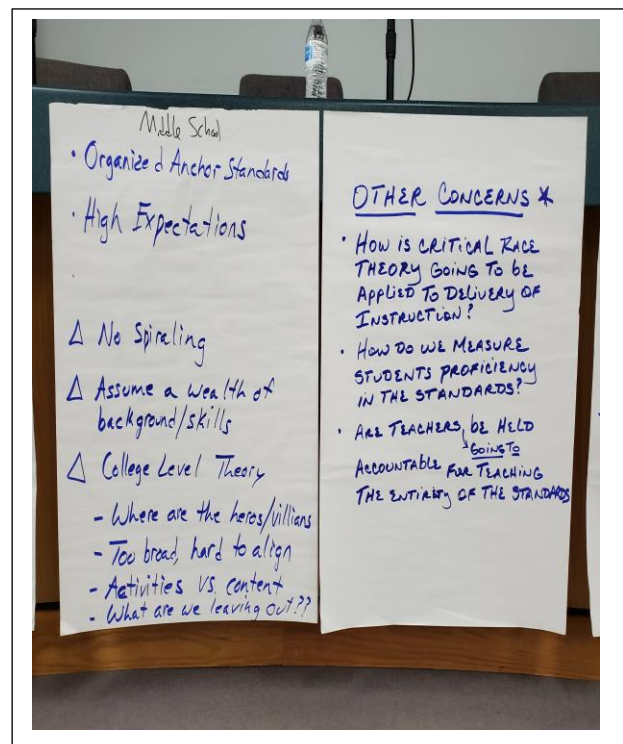 Middle School
• Organized Anchor Standards
• High Expectations
Δ No Spiraling
Δ Assume a wealth of
background/skills
Δ College Level Theory
- Where are the heros/villians
- Too broad, hard to align
- Activities vs. content
- What are we leaving out??
OTHER CONCERNS *
• HOW IS CRITICAL RACE
THEORY GOING TO BE
APPLIED TO DELIVERY OF
INSTRUCTION?
• HOW DO WE MEASURE
STUDENTS PROFICIENCY
IN THE STANDARDS?
• ARE TEACHERS BE HELD
GOING TO
ACCOUNTABLE FOR TEACHING
THE ENTIRETY OF THE STANDARDS